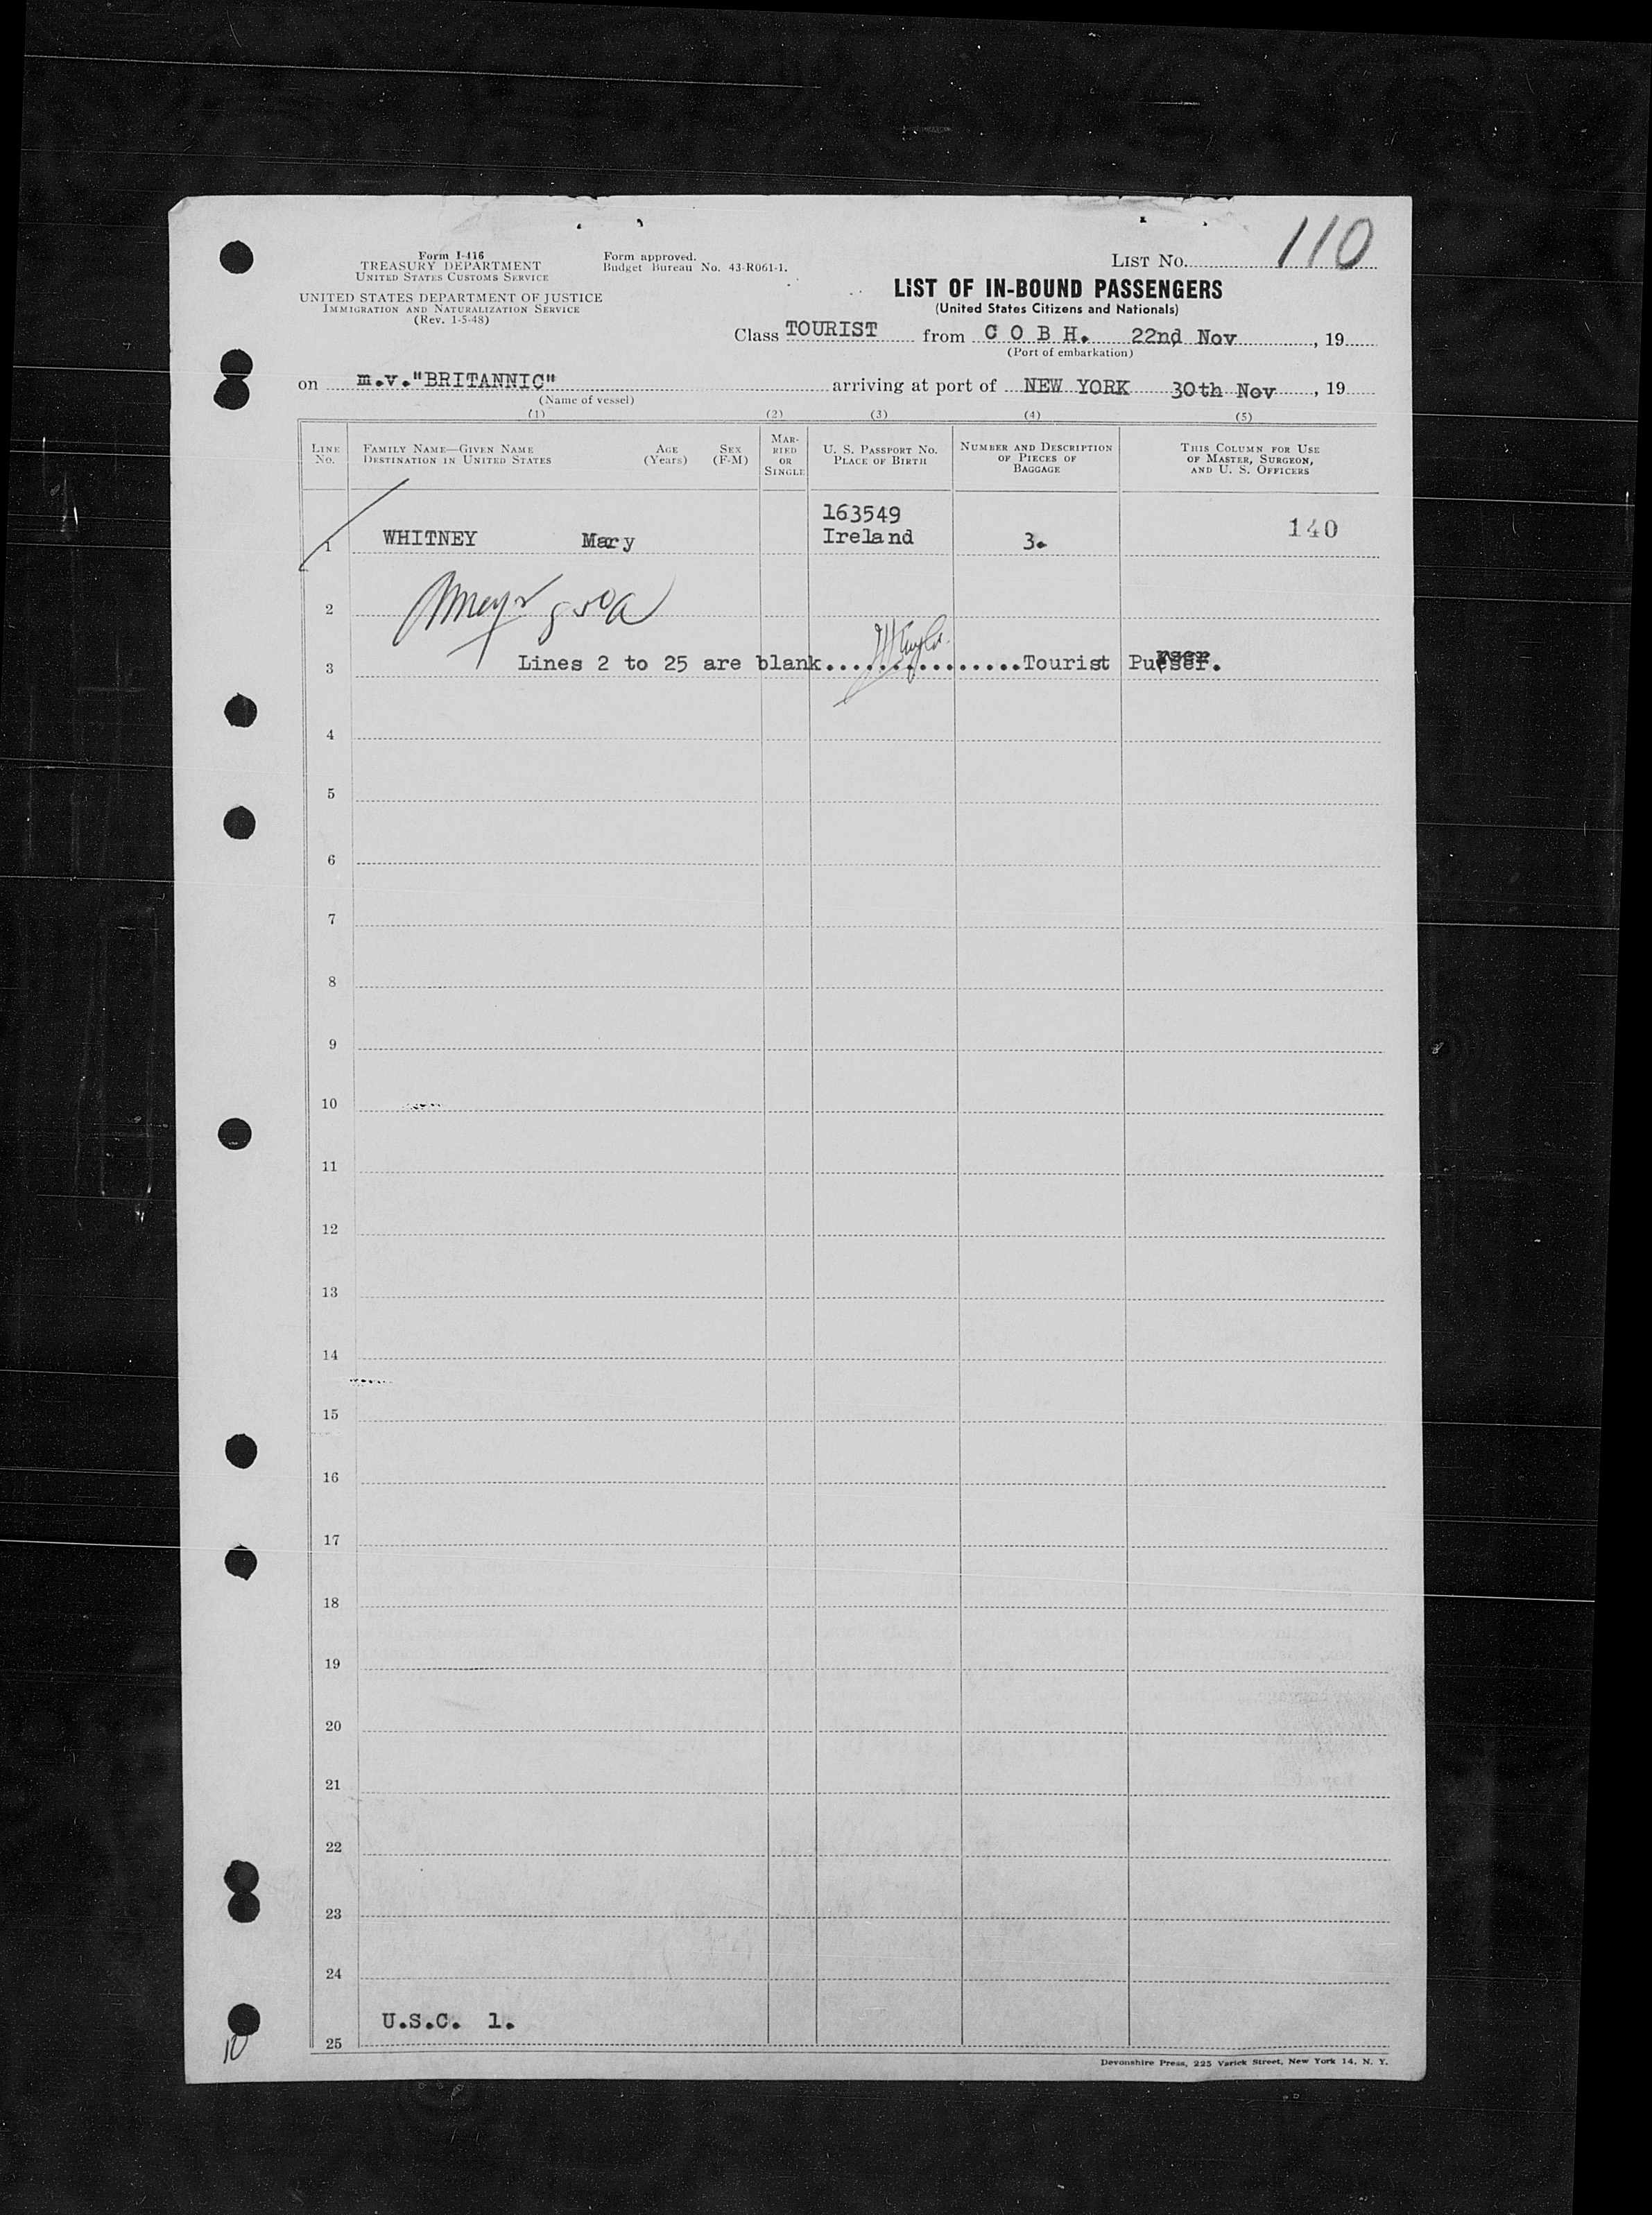 110
Form I-416
TREASURY DEPARTMENT
UNITED STATES CUSTOMS SERVICE
Form approved.
Budget Bureau No. 43-R061-1.
LIST NO.
UNITED STATES DEPARTMENT OF JUSTICE
IMMIGRATION AND NATURALIZATION SERVICE
(Rev. 1-5-48)
LIST OF IN-BOUND PASSENGERS
(United States Citizens and Nationals)
Class TOURIST from C O B H. 22nd Nov, 19
(Port of embarkation)
on m.v."BRITANNIC" arriving at port of NEW YORK 30th Nov, 19
(Name of vessel)
(1) (2) (3) (4) (5)
LINE No. FAMILY NAME—GIVEN NAME DESTINATION IN UNITED STATES AGE (Years) SEX (F-M) MARRIED OR SINGLE U. S. PASSPORT NO. PLACE OF BIRTH NUMBER AND DESCRIPTION OF PIECES OF BAGGAGE THIS COLUMN FOR USE OF MASTER, SURGEON, AND U. S. OFFICERS
163549
1 WHITNEY Mary Ireland 3. 140
2
3 Lines 2 to 25 are blank................Tourist Purser.
4
5
6
7
8
9
10
11
12
13
14
15
16
17
18
19
20
21
22
23
24
25 U.S.C. 1.
10
Devonshire Press, 225 Varick Street, New York 14, N. Y.